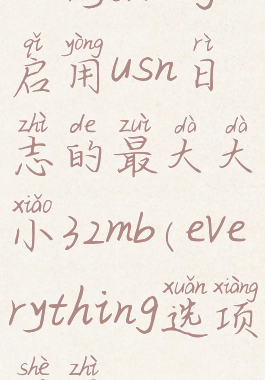 qǐ yòng rì
启用usn日
zhì de zuì dà dà
志的最大大
xiǎo
小32mb(eve
xuǎn xiàng
rything选项
shè zhì